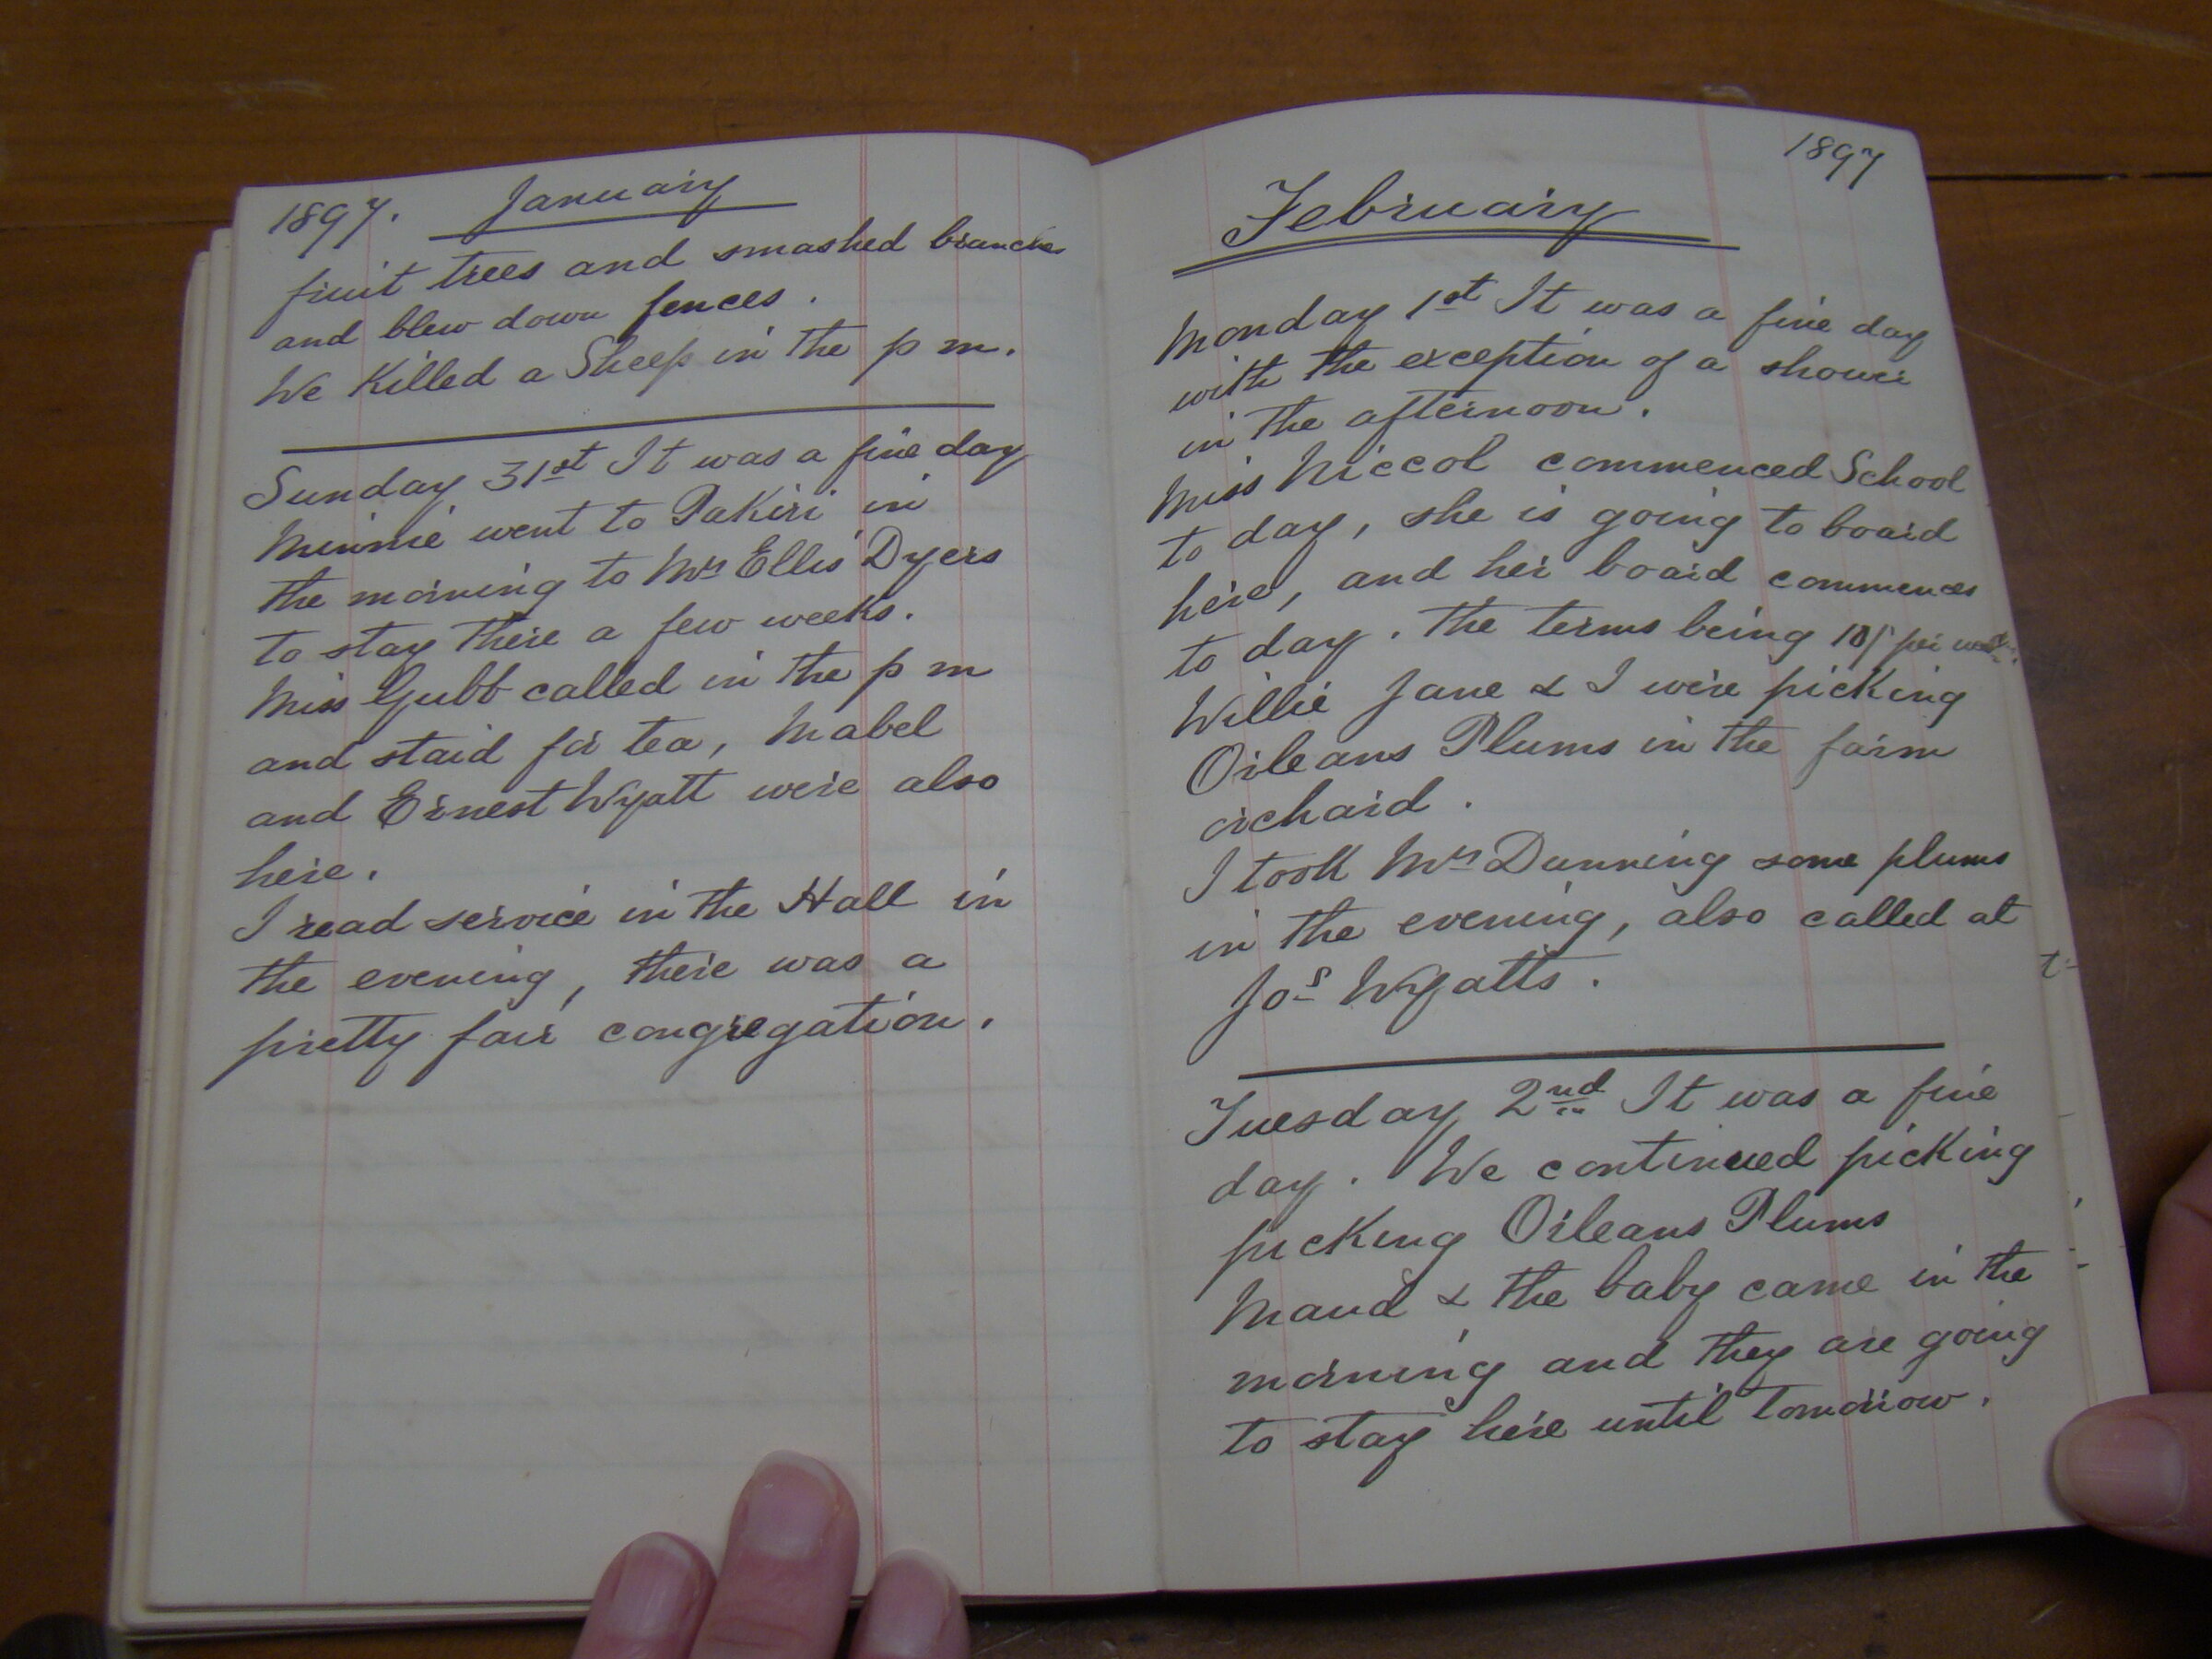 1897. January
fruit trees and smashed branches
and blew down fences.
We Killed a Sheep in the p m.
Sunday 31st It was a fine day
Minnie went to Pakiri in
the morning to Mrs Ellis Dyers
to stay there a few weeks.
Miss Gubb called in the p m
and staid for tea, Mabel
and Ernest Wyatt were also
here.
I read service in the Hall in
the evening, there was a
pretty fair congregation.
1897
February
Monday 1st It was a fine day
with the exception of a shower
in the afternoon.
Miss Niccol commenced School
to day, she is going to board
here, and her board commences
to day. The terms being 10/ per week.
Willie Jane & I were picking
Orleans Plums in the farm
orchard.
I took Mrs Dunning some plums
in the evening, also called at
Jos Wyatts.
Tuesday 2nd It was a fine
day. We continued picking
picking Orleans Plums
Maud & the baby came in the
morning and they are going
to stay here until tomorrow.